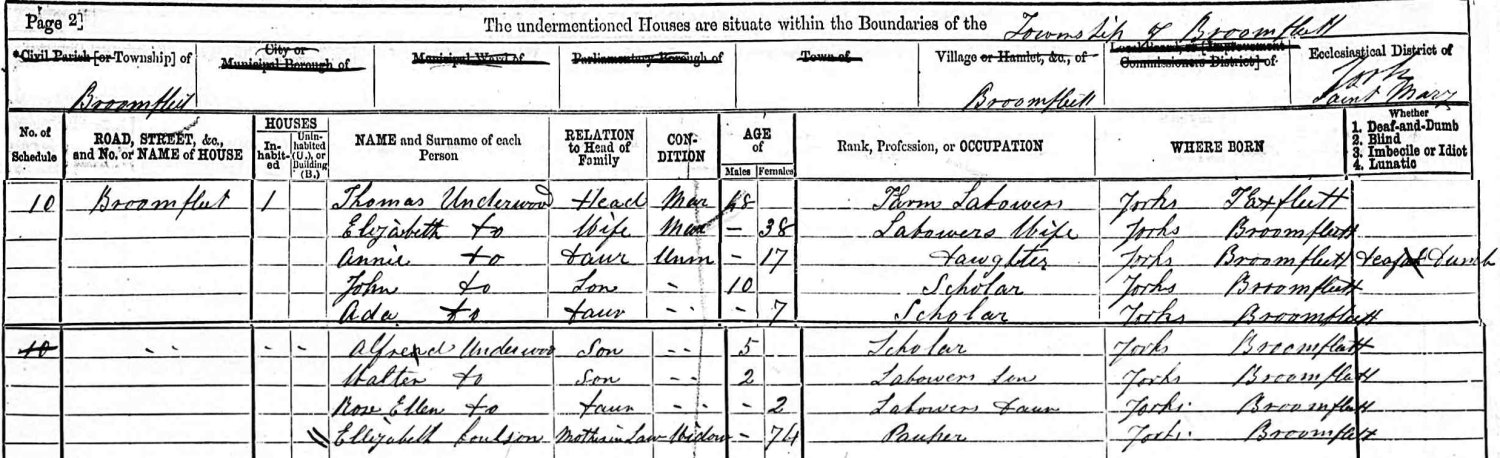 Page 2]
The undermentioned Houses are situate within the Boundaries of the Township of Broomfleet
*Civil Parish [or Township] of
City or Municipal Borough of
Municipal Ward of
Parliamentary Borough of
Town of
Village or Hamlet, &c., of
Local Board, or [Improvement Commissioners District] of
Ecclesiastical District of
Broomfleet
Broomfleett
York
Saint Mary
No. of Schedule
ROAD, STREET, &c., and No. or NAME of HOUSE
HOUSES
In-habit-ed
Unin-habited (U.), or Building (B.)
NAME and Surname of each Person
RELATION to Head of Family
CON-DITION
AGE of
Males
Females
Rank, Profession, or OCCUPATION
WHERE BORN
Whether
1. Deaf-and-Dumb
2. Blind
3. Imbecile or Idiot
4. Lunatic
10 Broomfleet 1 Thomas Underwood Head Mar 48 Farm Labowers Yorks Faxfleett
Elizabeth do Wife Mar – 38 Labowers Wife Yorks Broomfleett
Annie do daur Unm – 17 dawghter Yorks Broomfleett deaf and dumb
John do Son - 10 Scholar Yorks Broomfleett
Ada do daur - - 7 Scholar Yorks Broomfleett
10 - - - - Alfred Underwood Son - - 5 Scholar Yorks Broomfleett
Walter do Son - - 2 Labowers Son Yorks Broomfleett
Rose Ellen do daur - - - 2 Labowers daur Yorks. Broomfleett
Ellizabeth Coulson Mother in Law Widow – 74 Pauper Yorks. Broomfleett